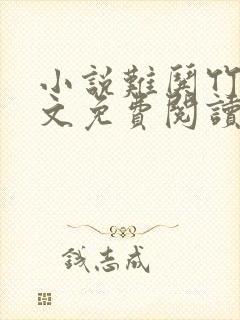 小說難與竹
文免費閱讀
錢志成